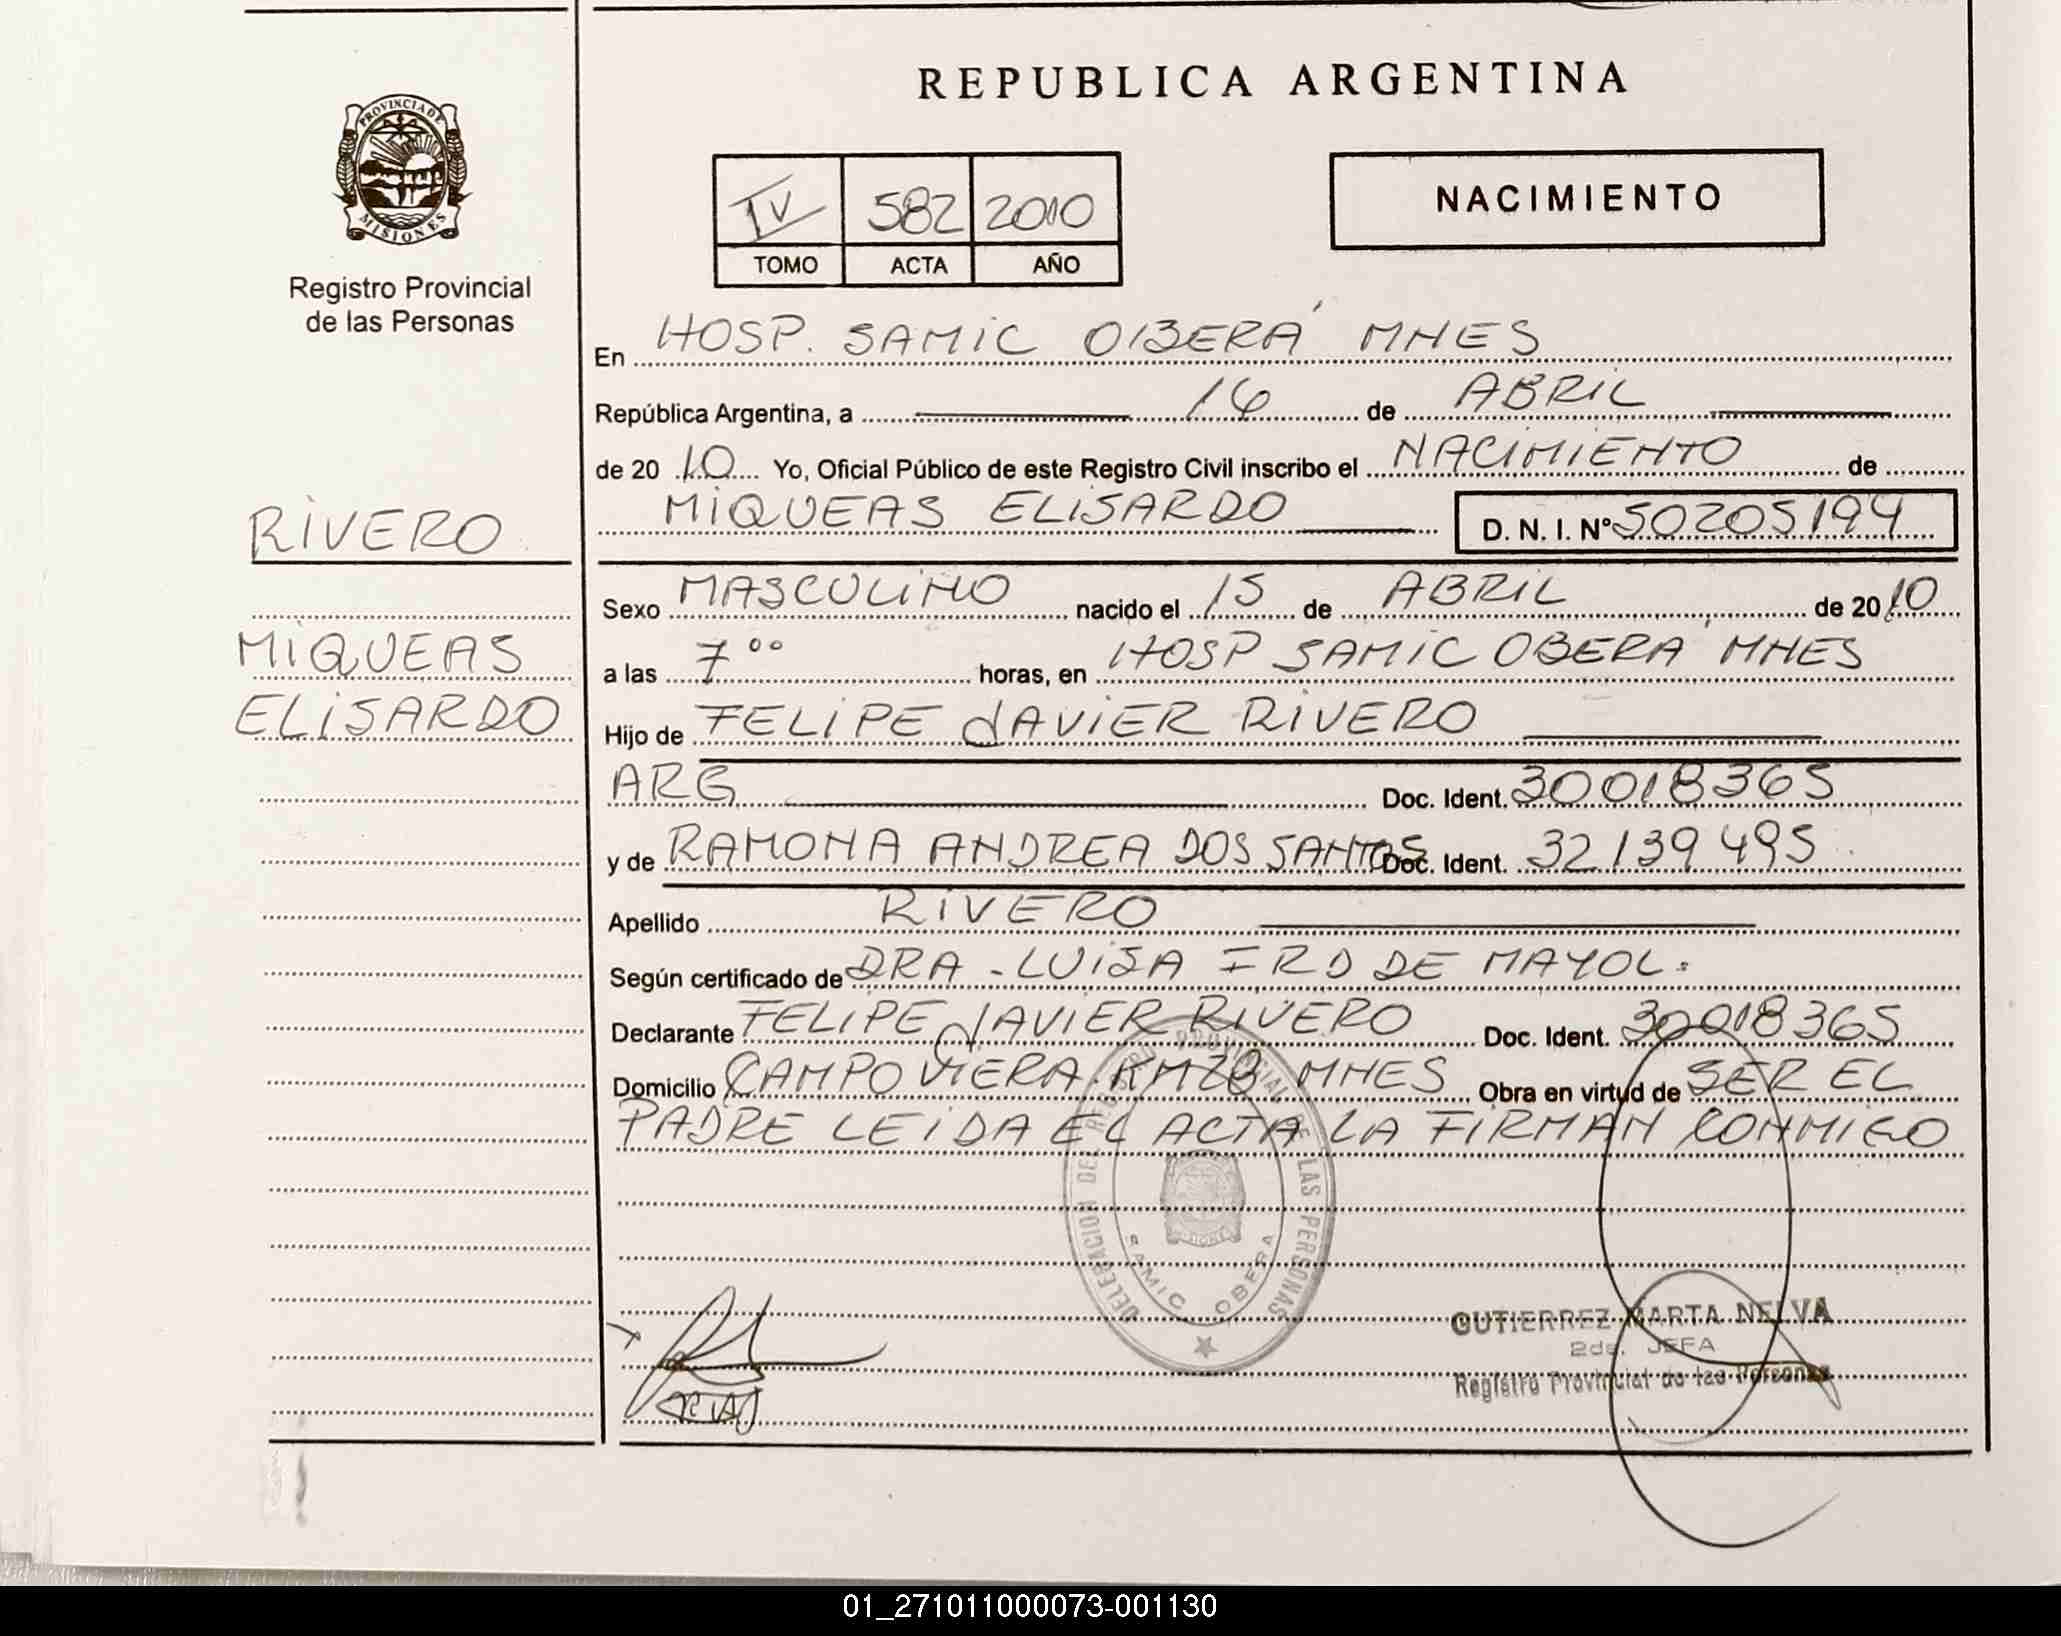 REPUBLICA ARGENTINA
PROVINCIA DE
MISIONES
Registro Provincial
de las Personas
IV 582 2010
TOMO ACTA AÑO
NACIMIENTO
En HOSP. SAMIC OBERÁ MNES
República Argentina, a 16 de ABRIL
de 20 10 Yo, Oficial Público de este Registro Civil inscribo el NACIMIENTO de
MIQUEAS ELISARDO D. N. I. Nº 50205194
RIVERO
MIQUEAS
ELISARDO
Sexo MASCULINO nacido el 15 de ABRIL de 20 10
a las 7 00 horas, en HOSP SAMIC OBERA MNES
Hijo de FELIPE JAVIER RIVERO
ARG Doc. Ident. 30018365
y de RAMONA ANDREA DOS SANTOS Doc. Ident. 32139495
Apellido RIVERO
Según certificado de DRA. LUISA FRD DE MAYOL.
Declarante FELIPE JAVIER RIVERO Doc. Ident. 30018365
Domicilio CAMPO VIERA KM 28 MNES Obra en virtud de SER EL
PADRE LEIDA EL ACTA LA FIRMAN CONMIGO
DELEGACION DEL REGISTRO PROVINCIAL DE LAS PERSONAS
SAMIC OBERA
GUTIERREZ MARTA NELVA
2da. JEFA
Registro Provincial de las Personas
01_271011000073-001130